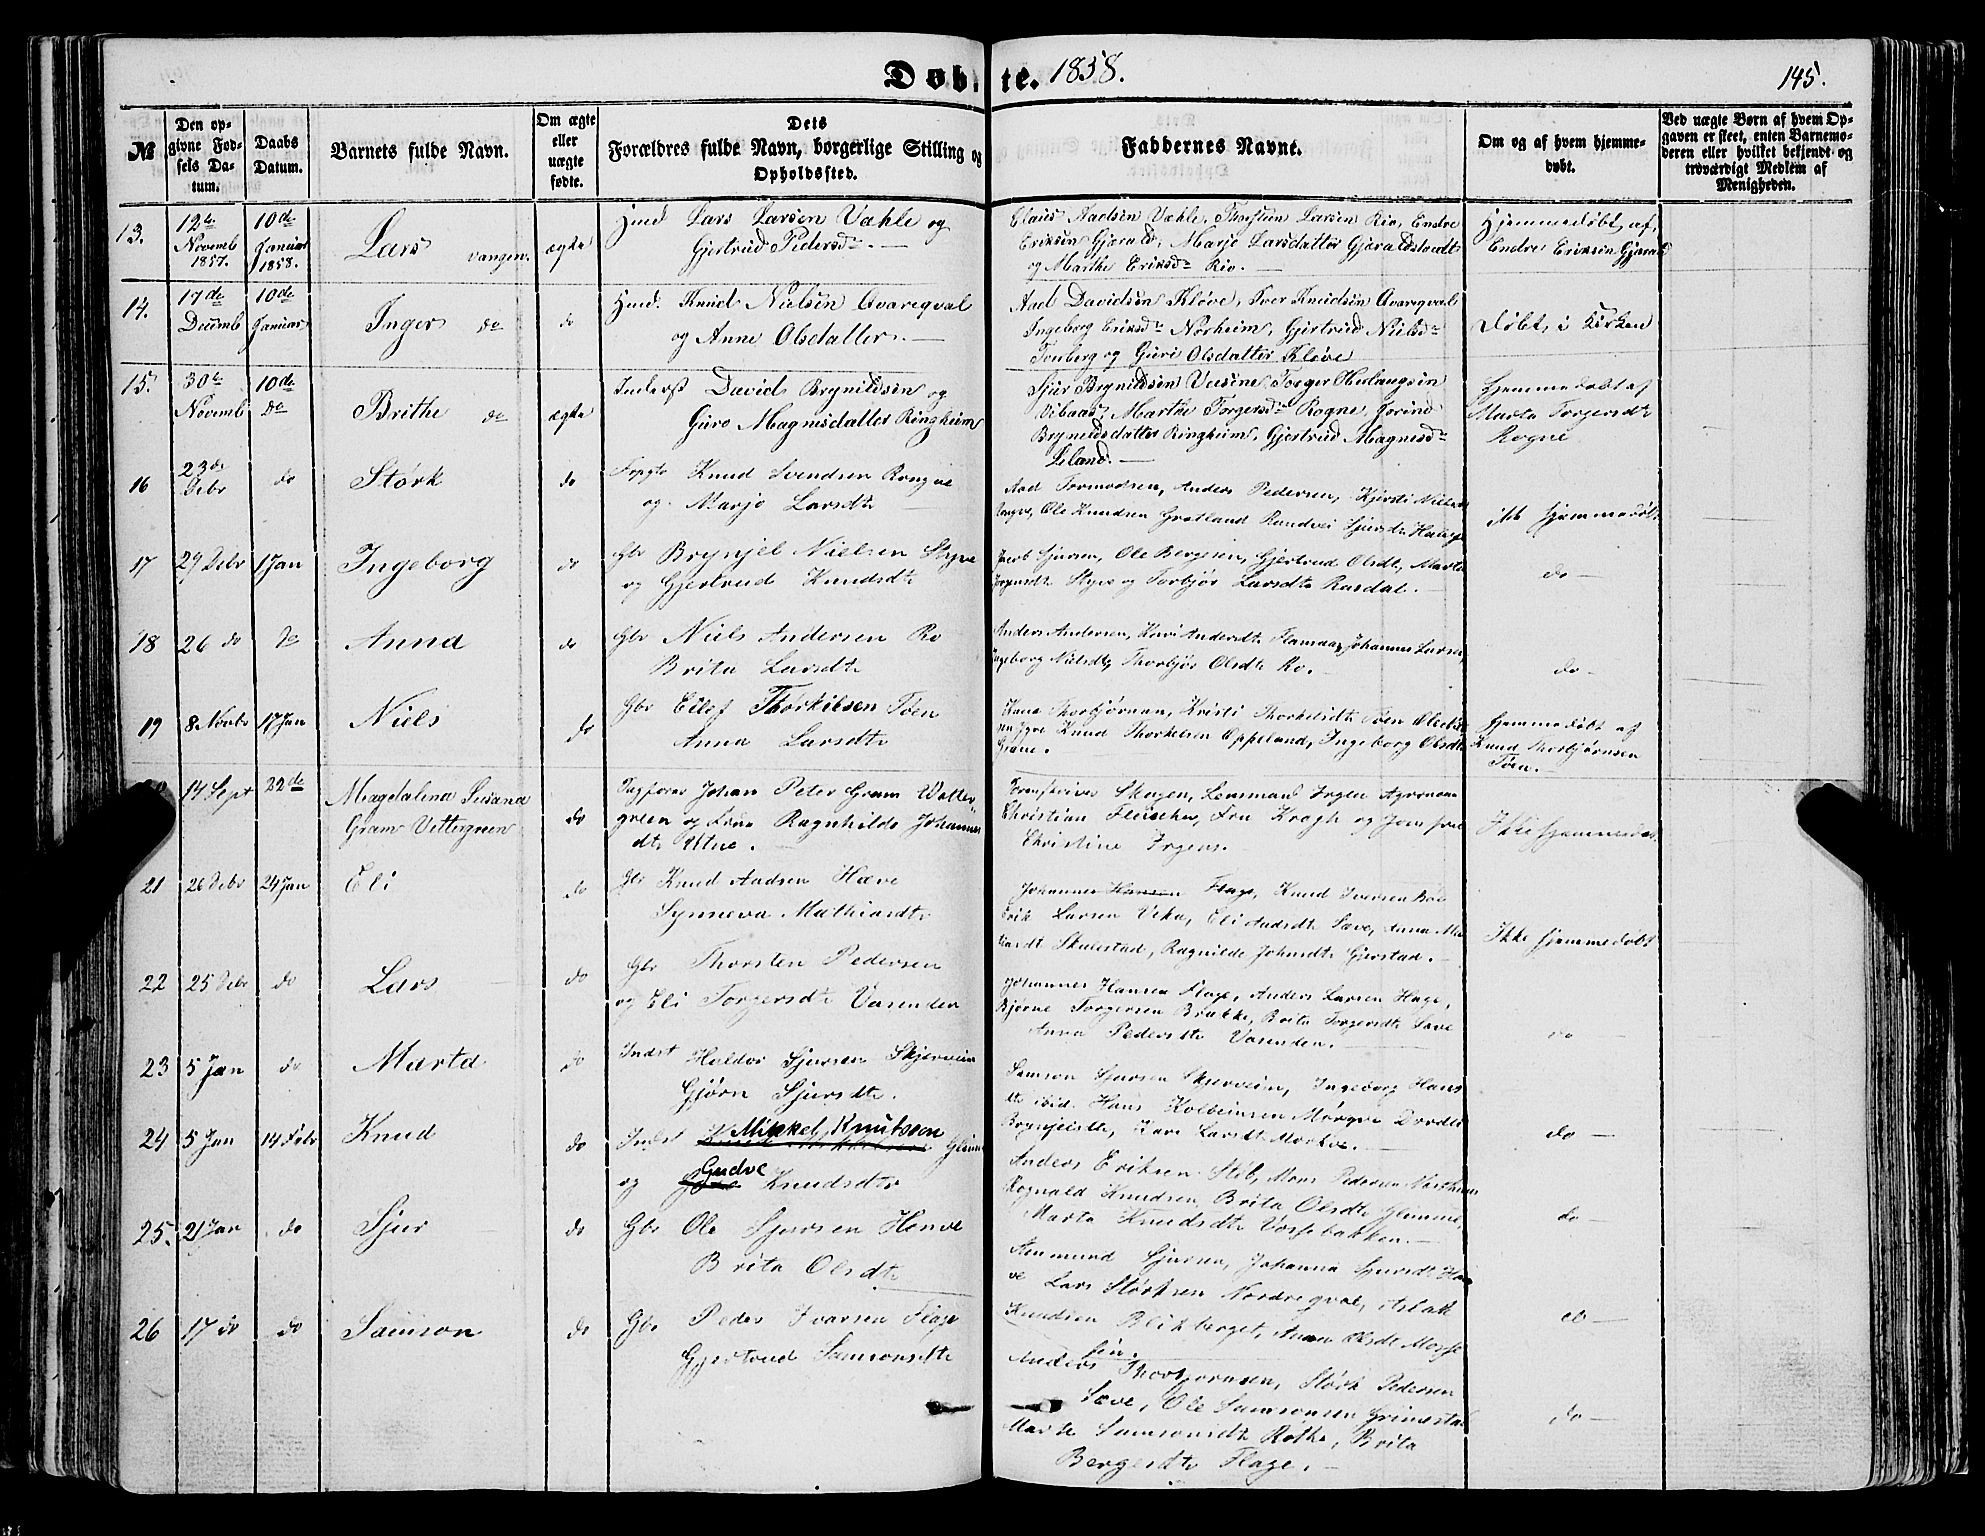 Døbte. 1858.
145.
№
Den op-
givne Fød-
sels Da-
tum.
Daabs
Datum.
Barnets fulde Navn.
Om ægte
eller
uægte
fødte.
Dets
Forældres fulde Navn, borgerlige Stilling og
Opholdssted.
Faddernes Navne.
Om og af hvem hjemme-
døbt.
Ved uægte Børn af hvem Op-
gaven er skeet, enten Barnemo-
deren eller hvilket bekjendt og
troværdigt Medlem af
Menigheden.
13.
12te
Novemb
1857.
10de
Januar
1858.
Lars vangen.
ægte
Lars Larsen Væhle og
Gjertrud Pedersdr.
Claus Aadsen Væhle, Thorstein Larsen Rio, Endre
Eriksen Gjerald, Marje Larsdatter
og Marthe Eriksdr Rio.
Hjemmedøbt af
Endre Eriksen Gjerald
14.
17de
Decemb
10de
Januar
Inger do
do
Knud Nielsen Qvareqval
og Anne Olsdatter.
Aad Davidsen Kløve, Iver Knudsen Qvareqval
Ingeborg Eriksdr Norheim, Gjertrud Nielsdr
Tenberg og Guri Olsdatter Kløve
Døbt i Kirken
15.
30te
Novemb
10de
do
Brithe do
ægte
Inderst David Brynildsen og
Guro Magnisdatter Ringheim
Sjur Brynildsen Torger
Marthe Torgersdr Rogne, Jorind
Brynildsdatter Ringheim, Gjertrud Magnisdr
Leland.
Hjemmedøbt af
Marta Torgersdr
Rogne
16
23de
Debr
do
Størk
do
Knud Svendsen Rongve
og Marjo Larsdtr
Aad Tormodsen, Anders Pedersen, Kjersti
Ole Knudsen Grotland Randvei Sjursdtr
ikk hjemmedøbt
17
29 Debr
1 Jan
Ingeborg
do
Gbr Brynjel Nielsen Styve
og Gjertrud Knudsdtr
Sjursen, Ole Bergesen, Gjertrud Olsdtr, Marta
Styve og Torbjør Larsdtr Rasdal.
do
18
26 do
do
Anna
do
Gbr Niels Andersen Ro
Brita Larsdtr
Anders Andersen, Kari Andersdtr Johannes Larsen,
Ingeborg Nielsdtr, Thorbjør Olsdtr Ro.
do
19
8 Novbr
17 Jan
Niels
do
Gbr Eilef Thorkilsen Tøen
Anna Larsdtr
Thorbjørnsen, Kristi Thorkelsdtr Tøen
Knud Thorkelsen Oppeland, Ingeborg Olsdtr
Grane.
Hjemmedøbt af
Knud Thorbjørnsen
Tøen.
14 Sept
22de
Magdalena Susana
Gram Vettergreen
do
Johan Peter Gram Wetter-
green og Frue Ragnhilde Johannes
dtr
Sorenskriver Skagen, Lensmand
Christian Fleischer, Fru Kragh og Jomfrue
Christine Irgens.
Ikke hjemmedøbt
21
26 Debr
24 Jan
Eli
do
Gbr Knud Aadsen Hæve
Synneva Mathiasdtr
Johannes Hansen Flage, Knud Iversen
Erik Larsen Veka, Eli Aadsdtr Sæve, Anna
Skulestad, Ragnilde Johnsdtr Gjerstad.
Ikke hjemmedøbt
22
25 Debr
do
Lars
do
Gbr Thorsten Pedersen
og Eli Torgersdtr Vasenden
Johannes Hansen Flage, Anders Larsen Hage,
Bjørne Torgersen Brække, Brita Torgersdtr Sæve
Anna Pedersdtr Vasenden.
do
23
5 Jan
do
Marta
do
Indst Haldor Sjursen Skjerveim
Gjørn Sjursdtr.
Samson Sjursen Skjerveim, Ingeborg Hans
dtr ibid. Hans Kolbeinsen Mørqve
Brynjelsdtr, Kari Larsdtr Mørkve.
do
24
5 Jan
14 Febr
Knud
do
Indst Mikkel Knutsson
og Gudve Knudsdtr
Anders Eriksen Mons Pedersen
Rognald Knudsen, Brita Olsdtr Glimme,
Marta Knudsdtr Vossebakken.
do
25.
21 Jan
do
Sjur
do
Gbr Ole Sjursen Honve
Brita Olsdtr
Aamund Sjursen, Johanna Sjursdtr
Lars Størksen Nordreqval, Aslak
Knudsen Blikberget, Anna Olsdtr
do
26
17 do
do
Samson
do
Gbr Peder Ivarsen Flage
Gjertrud Samsonsdtr
Anders Thorbjørnsen, Størk Pedersen
Sæve, Ole Samsonsen Grimestad
Marte Samsonsdtr Rothe, Brita
Bergesdtr Flage.
do